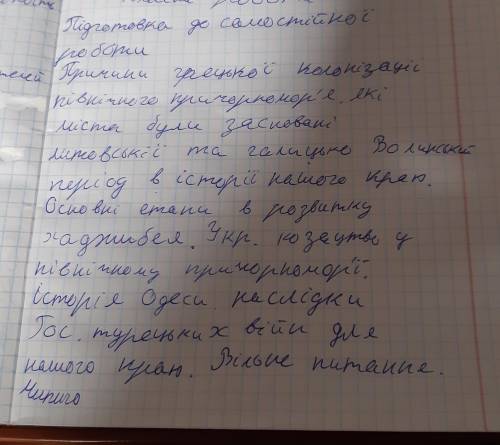 Підготовка до самостійної
роботи
Причини грецької колонізаціі
північного причорномор'я. які
міста були засновані
литовській та галицько Волинській
період в історії нашого краю.
Основні етапи в розвитку
хаджибея. Укр. козацтво у
північному причорноморії.
історія Одеси. наслідки
Рос. турецьких війн для
нашого краю. Вільне питання.